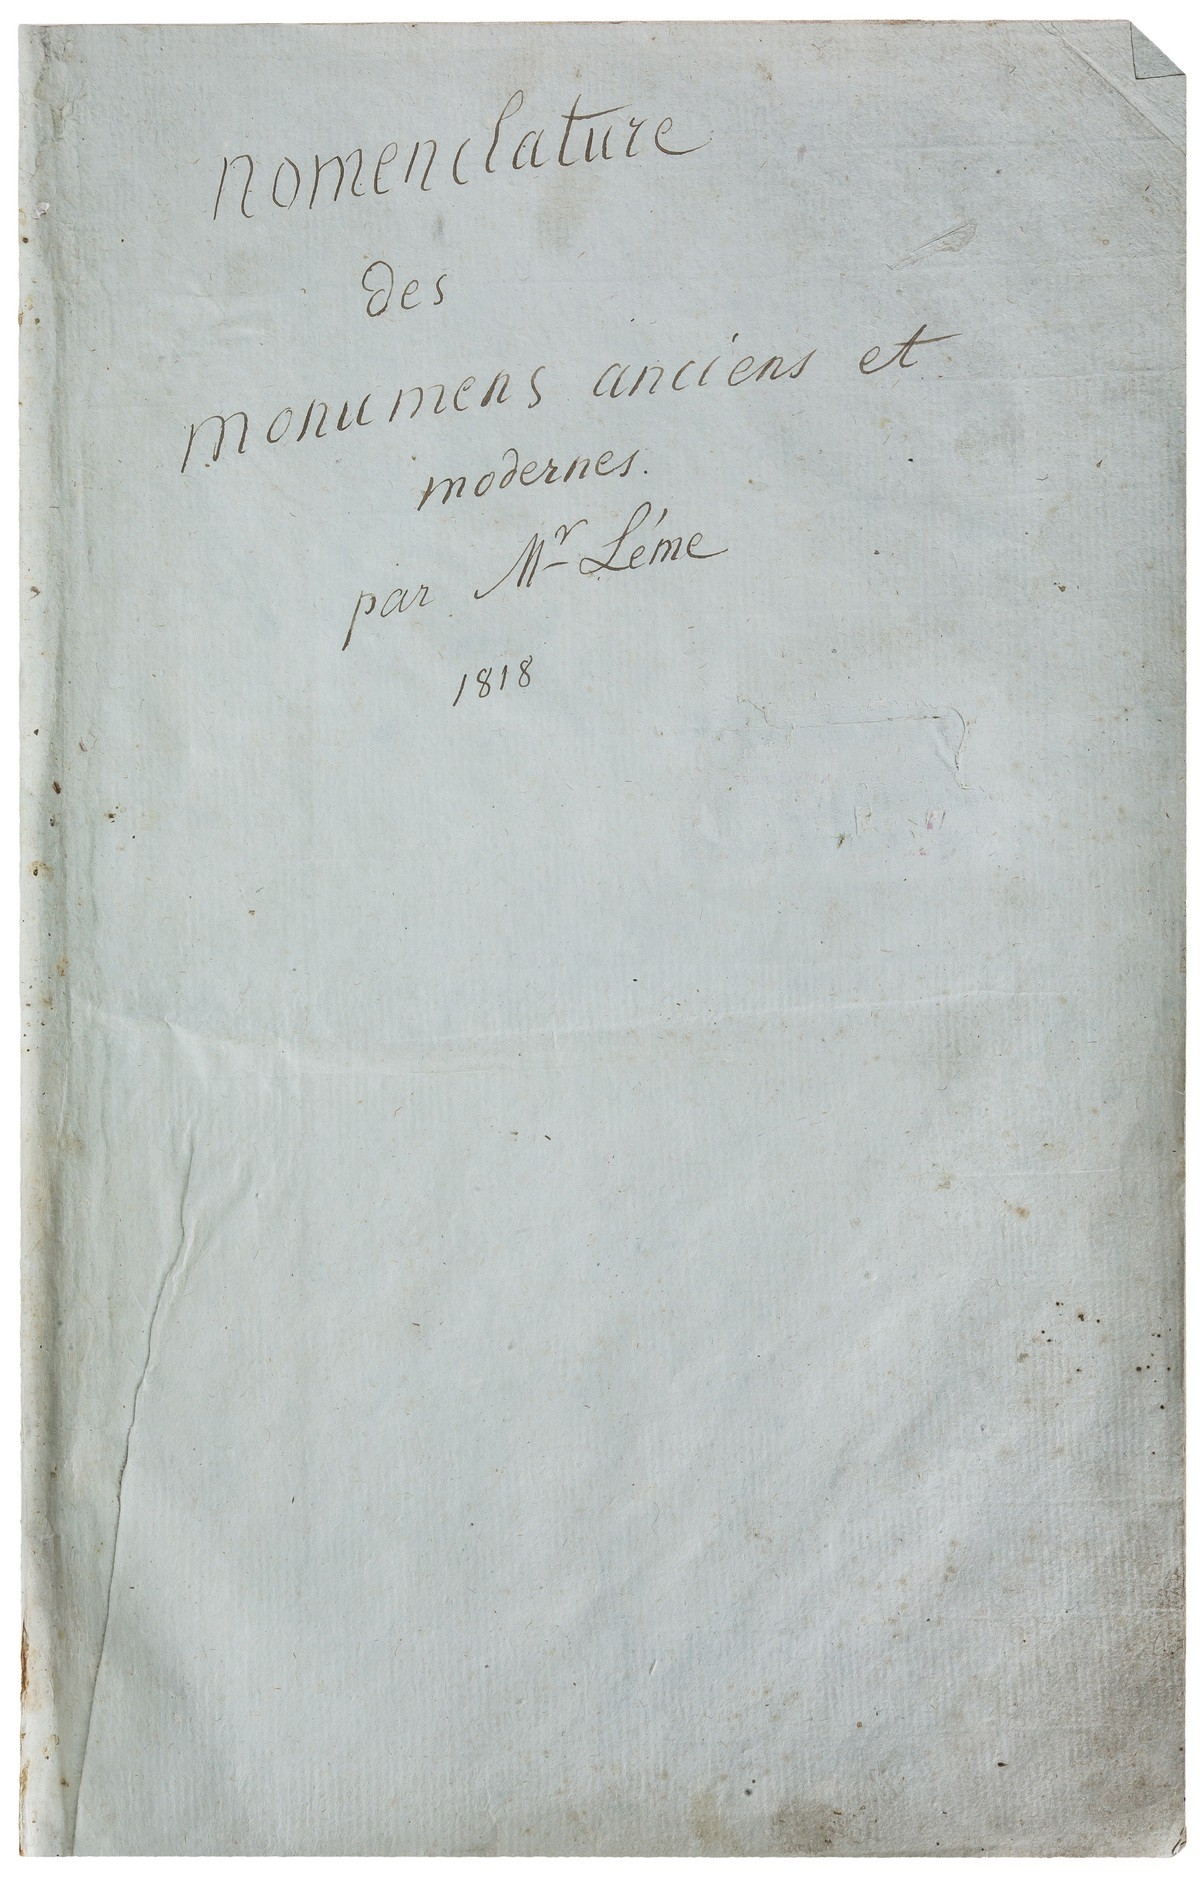 nomenclature
des
monumens anciens et
modernes.
par Mr Léme
1818